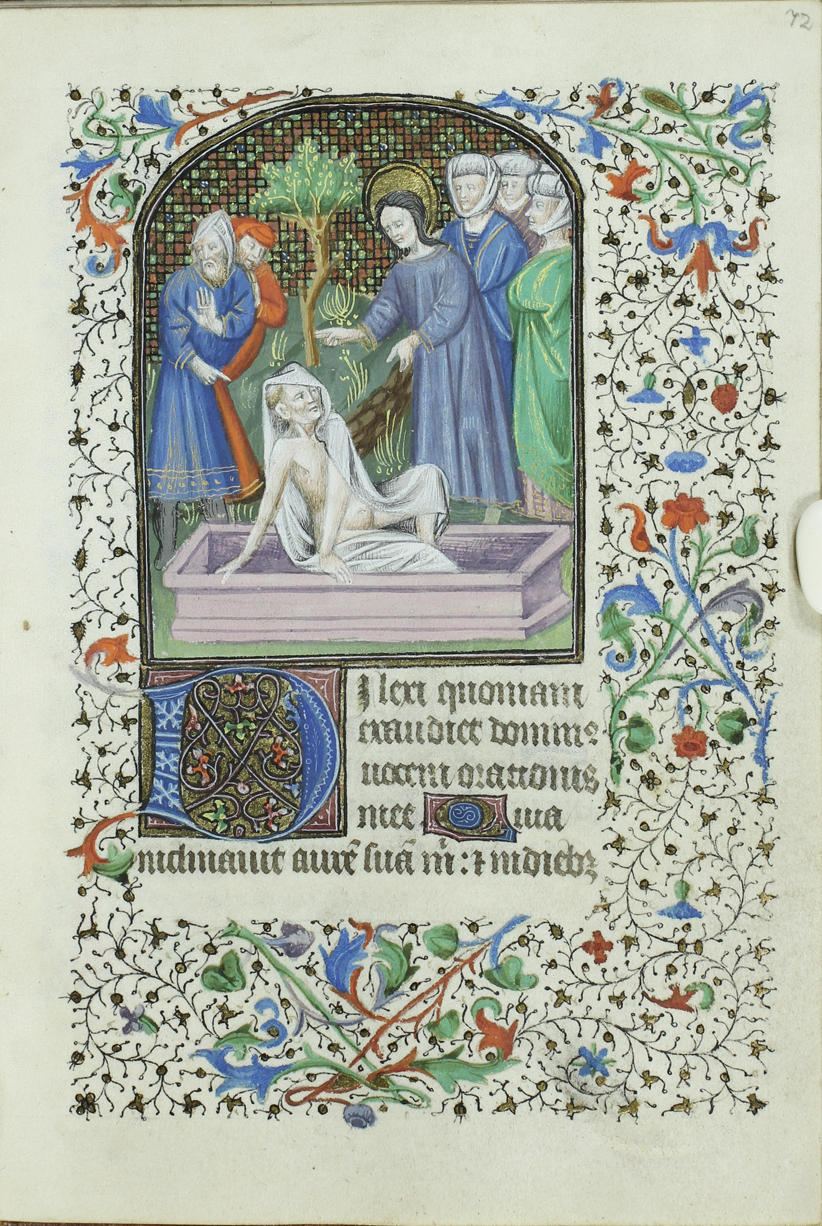 72
Dilexi quoniam
exaudiet domin9
uocem orationis
mee Quia
inclinauit aurē suā m̄ : ⁊ in dieb3